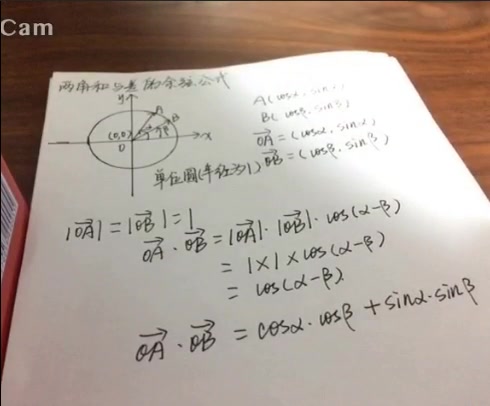 Cam
两角和与差的余弦公式
A(cosα, sinα)
B(cosβ, sinβ)
y
A
B
(0,0)
x
O
OA = (cosα, sinα)
OB = (cosβ, sinβ)
单位圆(半径为1)
|OA| = |OB| = 1
OA · OB = |OA| · |OB| · cos(α-β)
= 1×1×cos(α-β)
= cos(α-β)
OA · OB = cosα · cosβ + sinα · sinβ